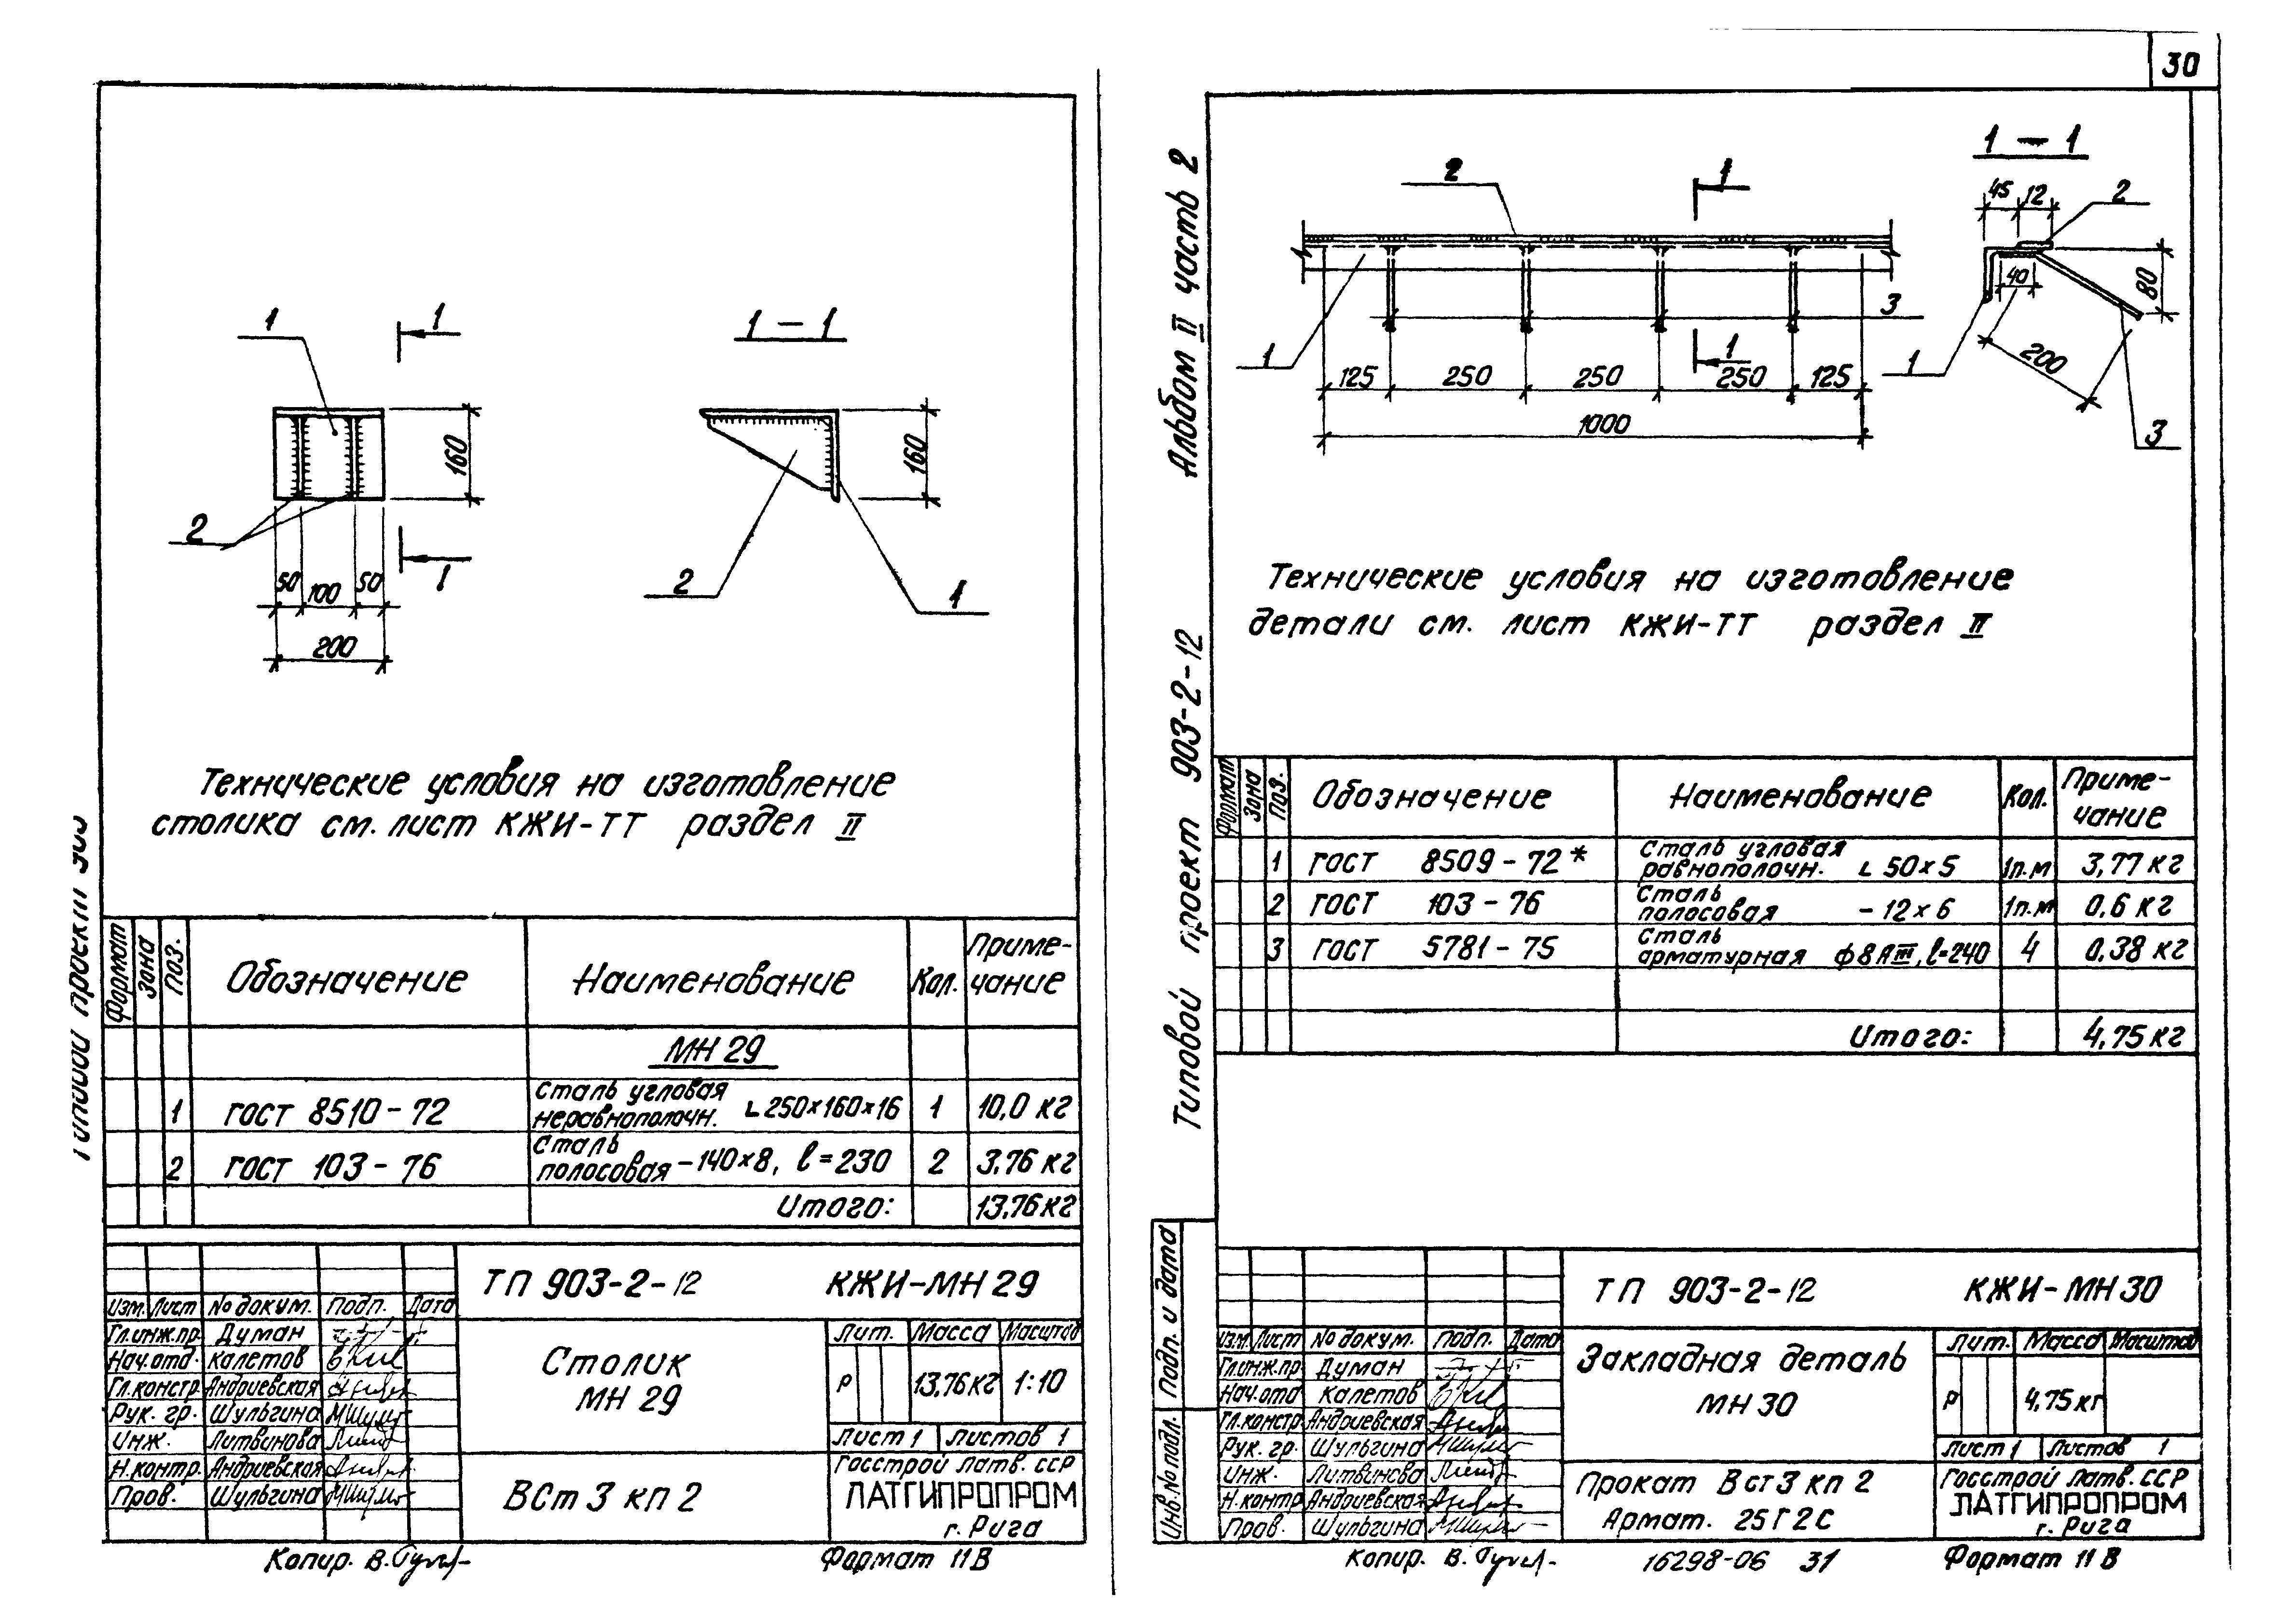 30
1
1
1 – 1
160
160
2
1
50
100
50
200
2
1
Технические условия на изготовление
столика см. лист КЖИ-ТТ раздел II
Формат Зона Поз. Обозначение Наименование Кол. Приме-
чание
МН 29
1 ГОСТ 8510-72 Сталь угловая неравнополочн. L 250×160×16 1 10,0 кг
2 ГОСТ 103-76 Сталь полосовая -140×8, ℓ=230 2 3,76 кг
Итого: 13,76 кг
ТП 903-2-12 КЖИ-МН 29
Изм. Лист № докум. Подп. Дата
Гл.инж.пр. Думан
Нач.отд. Калетов
Гл.констр. Андриевская
Рук. гр. Шульгина
Инж. Литвинова
Н.контр. Андриевская
Пров. Шульгина
Столик
МН 29
Лит. Масса Масштаб
Р 13,76 кг 1:10
Лист 1 Листов 1
ВСт 3 кп 2
Госстрой Латв. ССР
ЛАТГИПРОПРОМ
г. Рига
Копир. В.
Формат 11В
Альбом II часть 2
Типовой проект 903-2-12
2
1
1 – 1
45
12
2
40
80
3
1
1
1
200
3
125
250
250
250
125
1000
Технические условия на изготовление
детали см. лист КЖИ-ТТ раздел II
Формат Зона Поз. Обозначение Наименование Кол. Приме-
чание
1 ГОСТ 8509-72* Сталь угловая равнополочн. L 50×5 1п.м 3,77 кг
2 ГОСТ 103-76 Сталь полосовая -12×6 1п.м 0,6 кг
3 ГОСТ 5781-75 Сталь арматурная ф8АIII, ℓ=240 4 0,38 кг
Итого: 4,75 кг
Подп. и дата
Инв.№ подл.
ТП 903-2-12 КЖИ-МН 30
Изм. Лист № докум. Подп. Дата
Гл.инж.пр Думан
Нач.отд Калетов
Гл.констр Андриевская
Рук. гр. Шульгина
Инж. Литвинова
Н.контр Андриевская
Пров. Шульгина
Закладная деталь
МН 30
Лит. Масса Масштаб
Р 4,75 кг
Лист 1 Листов 1
Прокат ВСт 3 кп 2
Армат. 25Г2С
Госстрой Латв. ССР
ЛАТГИПРОПРОМ
г. Рига
Копир. В.
16298-06 31
Формат 11В